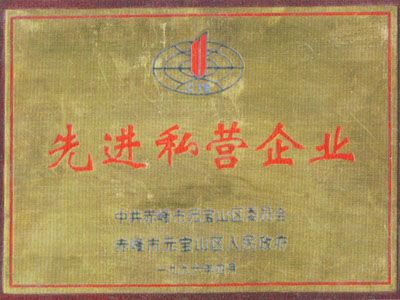 先进私营企业
中共赤峰市元宝山区委员会
赤峰市元宝山区人民政府